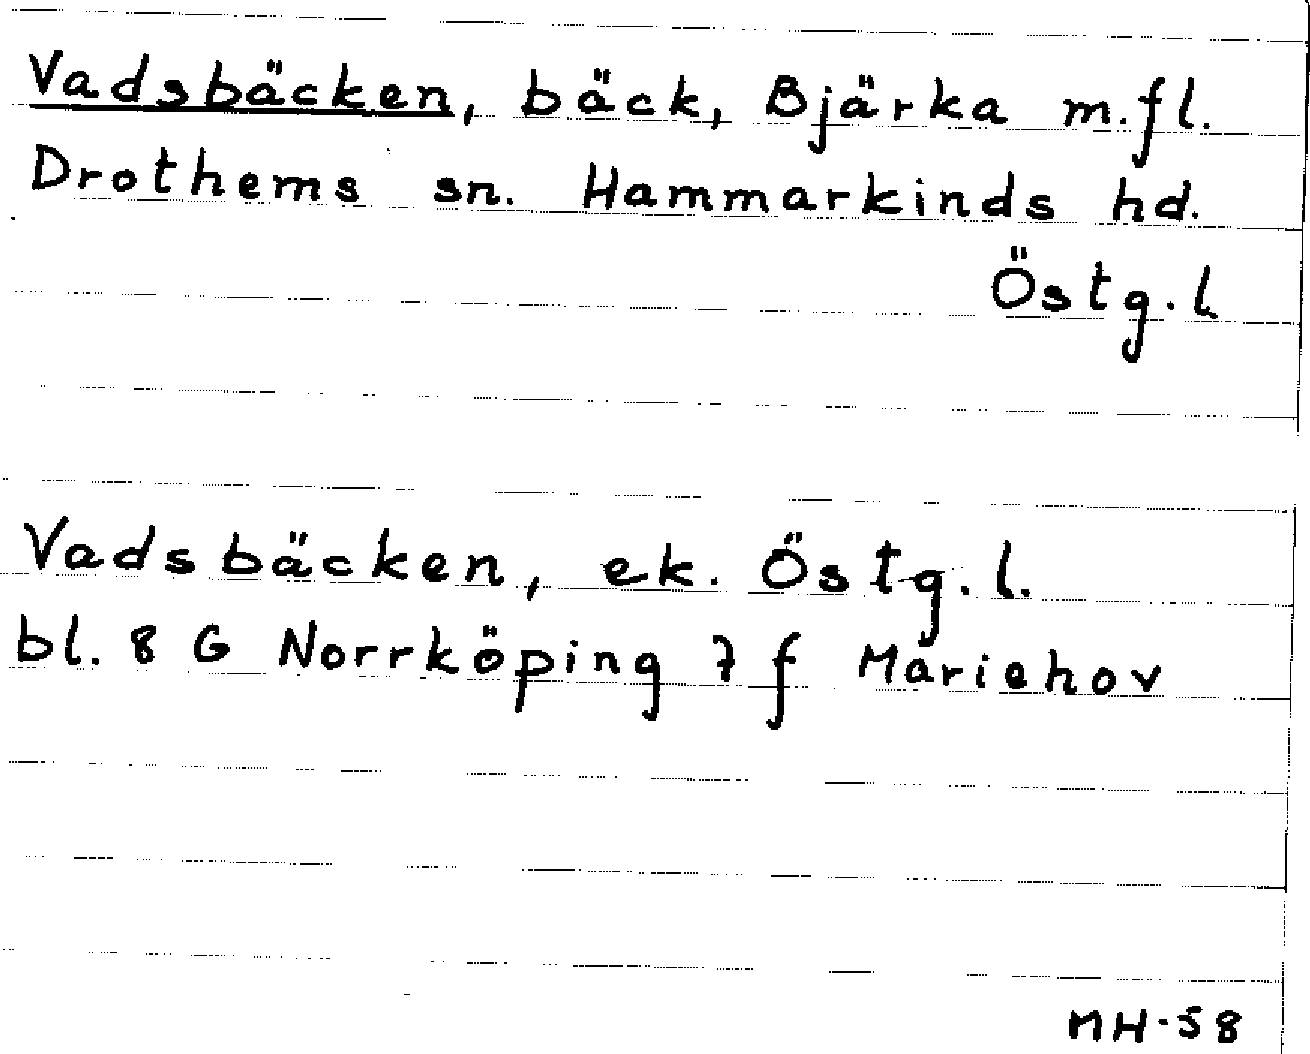 Vadsbäcken, bäck, Bjärka m.fl.
Drothems sn. Hammarkinds hd.
Östg.l
Vadsbäcken, ek. Östg.l.
bl. 8 G Norrköping 7 f Mariehov
MH-58